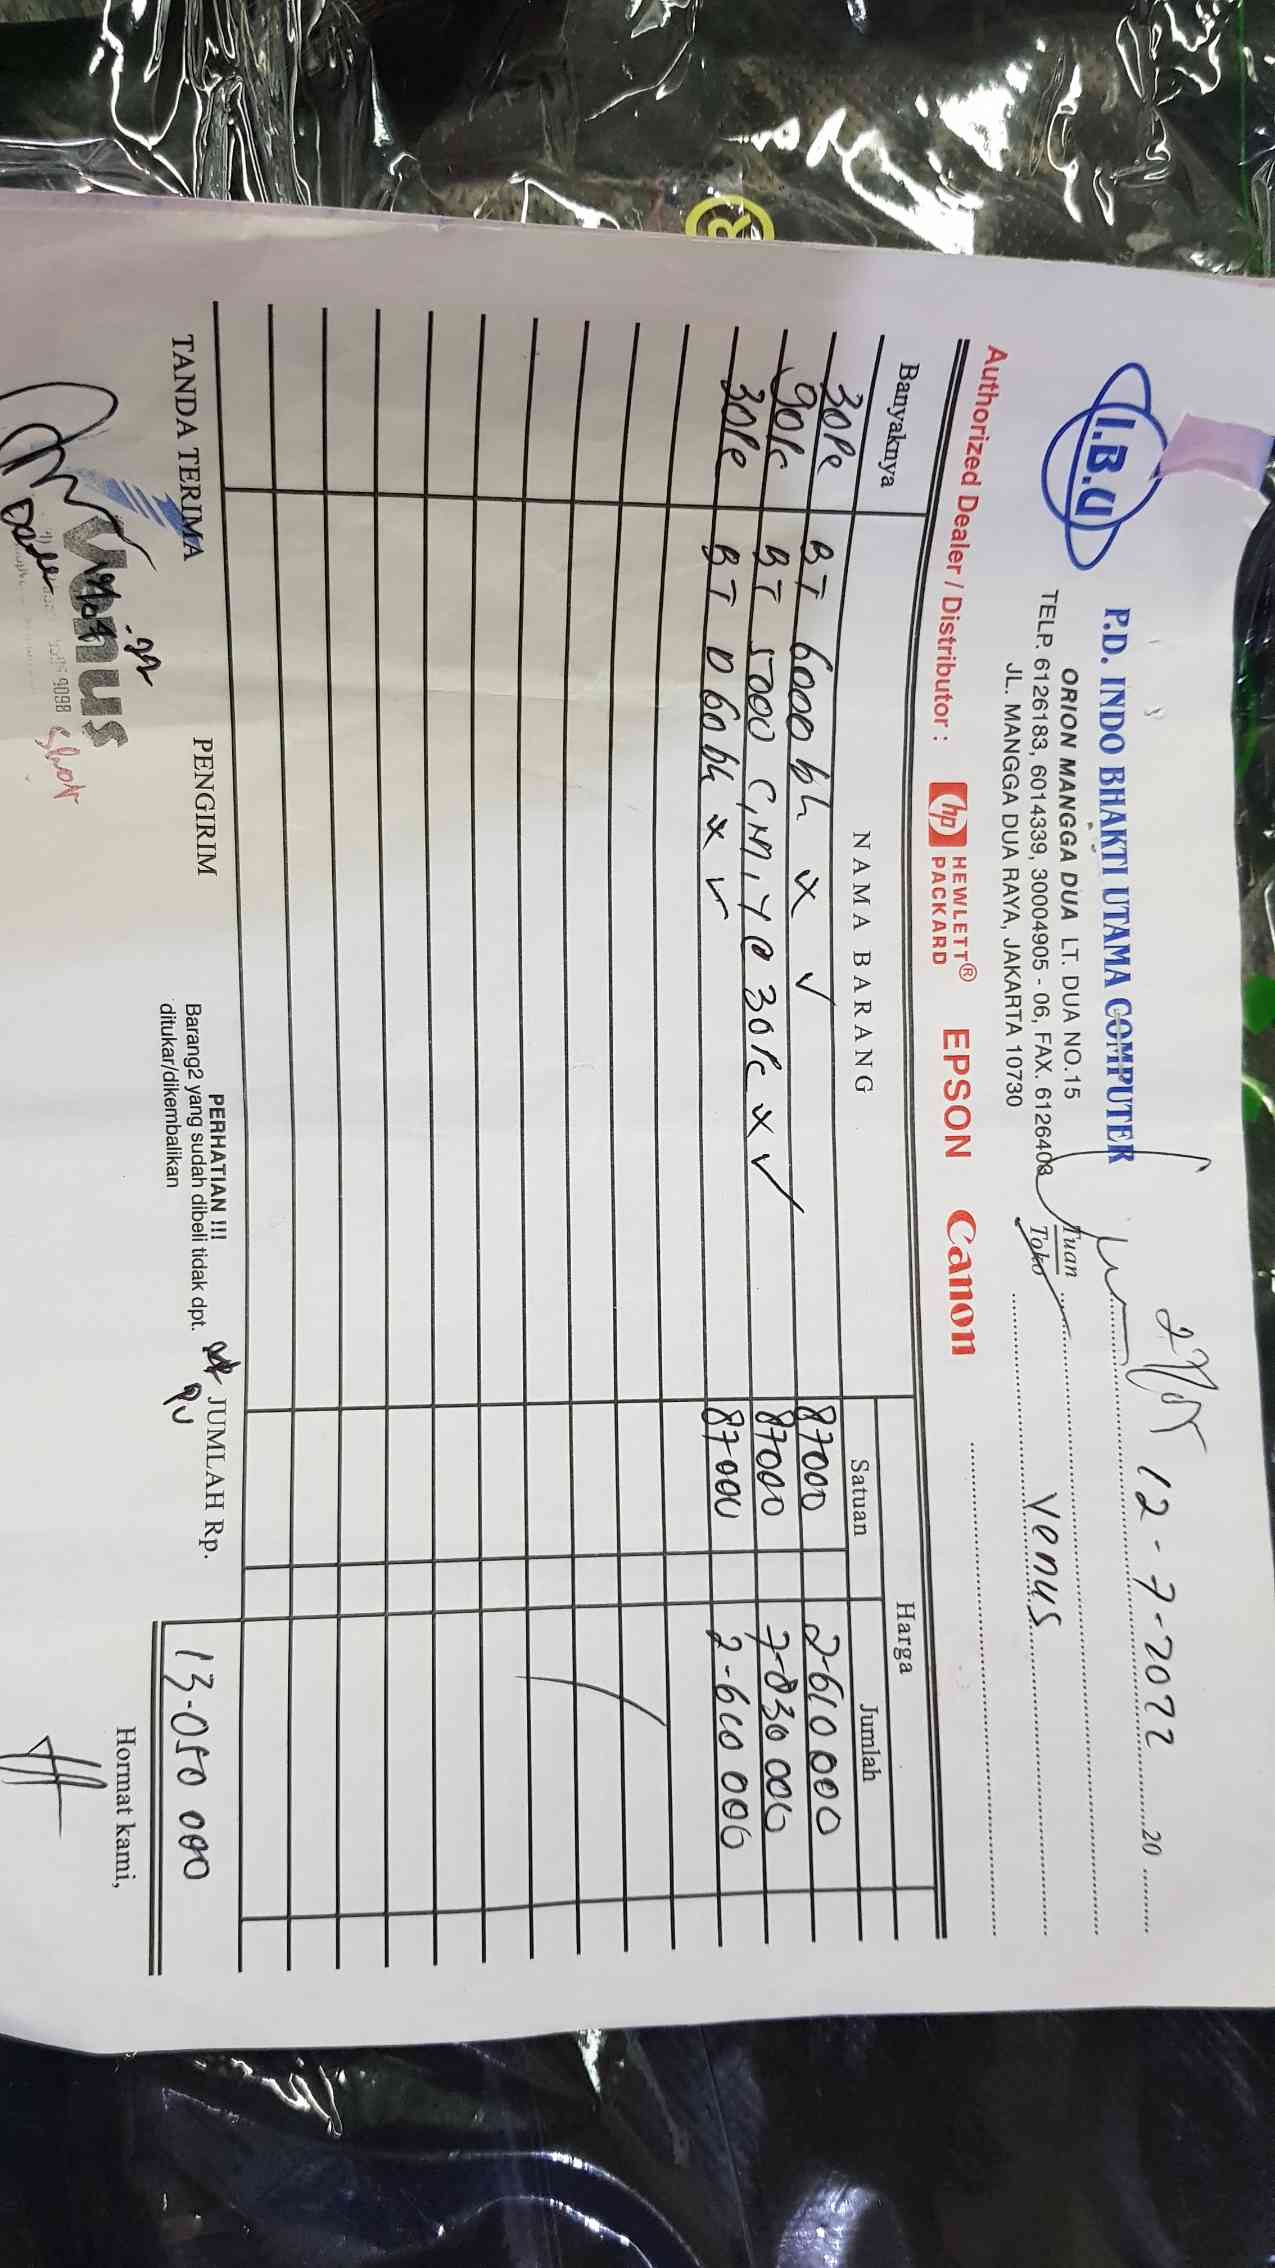 I.B.U
P.D. INDO BHAKTI UTAMA COMPUTER
ORION MANGGA DUA LT. DUA NO.15
TELP. 6126183, 6014339, 30004905 - 06, FAX. 6126403
JL. MANGGA DUA RAYA, JAKARTA 10730
12-7-2022 20
Tuan
Toko
Venus
Authorized Dealer / Distributor : hp HEWLETT® PACKARD EPSON Canon
Banyaknya NAMA BARANG Harga
Satuan Jumlah
30Pc BT 6000 bk x ✓ 87000 2-610 000
90Pc BT 5000 C,M,Y @ 30Pc x ✓ 87000 7-830 000
30Pc BT D60 bk x ✓ 87000 2-610 000
TANDA TERIMA PENGIRIM
PERHATIAN !!!
Barang2 yang sudah dibeli tidak dpt.
ditukar/dikembalikan
JUMLAH Rp. 13-050 000
Hormat kami,
venus
9098
®